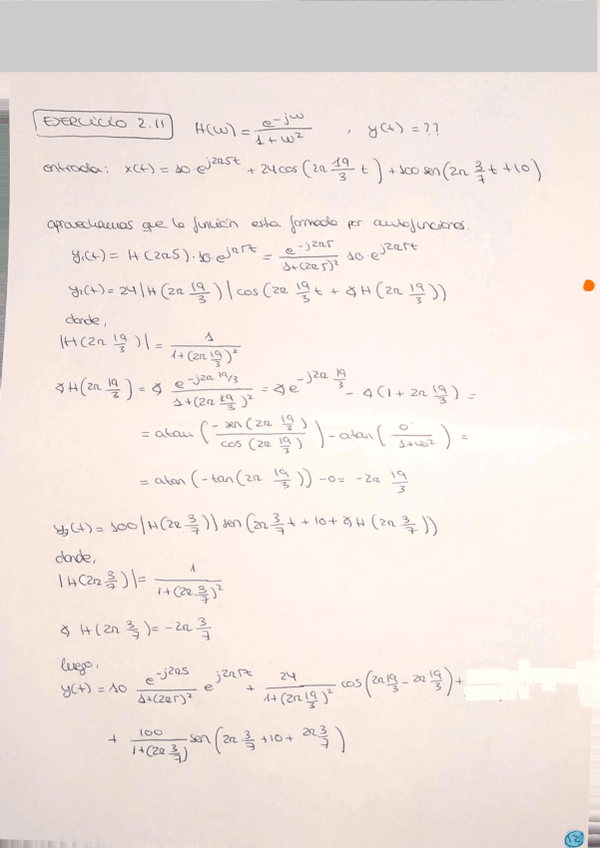 EJERCICIO 2.11 H(ω) = e^-jω / 1+ω² , y(t) = ??
entrada: x(t) = 10·e^j2π5t + 24cos(2π 19/3 t) + 100 sen(2π 3/7 t + 10)
aprovechamos que la función esta formada por autofunciones.
y₁(t) = H(2π5)·10·e^j2π5t = e^-j2π5 / 1+(2π5)² 10·e^j2π5t
y₂(t) = 24|H(2π 19/3)|cos(2π 19/3 t + ∢H(2π 19/3))
donde,
|H(2π 19/3)| = 1 / 1+(2π 19/3)²
∢H(2π 19/3) = ∢ e^-j2π 19/3 / 1+(2π 19/3)² = ∢e^-j2π 19/3 - ∢(1+2π 19/3) =
= atan(-sen(2π 19/3) / cos(2π 19/3)) - atan(0 / 1+ω²) =
= atan(-tan(2π 19/3)) - 0 = -2π 19/3
y₃(t) = 100|H(2π 3/7)| sen(2π 3/7 t + 10 + ∢H(2π 3/7))
donde,
|H(2π 3/7)| = 1 / 1+(2π 3/7)²
∢H(2π 3/7) = -2π 3/7
luego,
y(t) = 10 e^-j2π5 / 1+(2π5)² e^j2π5t + 24 / 1+(2π 19/3)² cos(2π 19/3 - 2π 19/3) +
+ 100 / 1+(2π 3/7) sen(2π 3/7 + 10 + 2π 3/7)
12